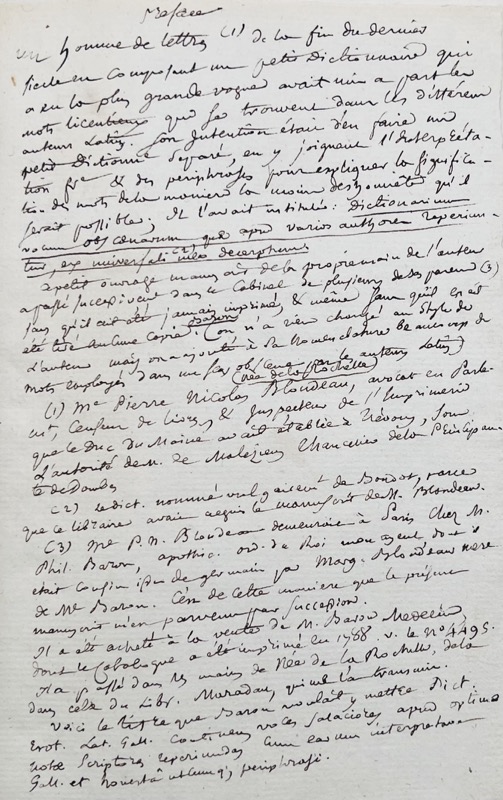 Preface
un homme de lettres (1) de la fin du dernier
siecle en composant un petit dictionnaire qui
a eu la plus grande vogue avait mis a part les
mots licentieux que se trouvent dans les différens
auteurs Latins. son Intention était d'en faire un
petit dictionnre separé, en y joignant l'Interpréta-
tion fse & des periphrases pour expliquer la significa-
tion des mots de la maniere la moins deshonnête qu'il
serait possible, Il l'avait intitulé: dictionarium
vocum obscaenarum (2) quae apud varios authores reperiun-
tur, ex universali meo decerptum
ce petit ouvrage manuscrit de la propre main de l'auteur
a passé successivement dans le Cabinet de plusieurs de ses parens (3)
sans qu'il ait été jamais imprimé, & même sans qu'il en ait
été tiré aucune copie. Baron (on n'a rien changé au style de
L'auteur mais on a ajouté à sa nomenclature beaucoup de
mots employés dans un sens obscene par les auteurs Latins)
(1) Me Pierre Nicolas Blondeau, avocat en Parle-
mt, Censeur de livres, & Inspecteur de l'Imprimerie
que le Duc du Maine avait établie à Trévoux, sous
L'autorité de M. de Malezieu Chancelier de la Principau-
té de Dombes
(2) Le dict. nommé vulgairemt de Boudot, parce
que ce libraire avait acquis le manuscrit de M. Blondeau.
(3) Me P. N. Blondeau demeurait à Paris chez M.
Phil. Baron, apothic. ord. du Roi mon ayeul, dont il
était cousin issu de germain par Marg. Blondeau mere
de Mr Baron. C'est de cette maniere que le présent
manuscrit m'est parvenu par succession.
Il a été acheté à la vente de M. Baron Medecin,
dont le Catalogue a été imprimé en 1788. v. le No 4495.
Il a passé dans les mains de Née de la Rochelle, de la
dans celles du Libr. Maradan, qui me l'a transmis.
Voici le titre que Baron voulait y mettre Dict.
Erot. Lat. Gall. continens voces salaciores, apud optimae
notae Scriptores reperiundas cum earum interpretatione
Gall. et honestâ utcumq; periphrasi.